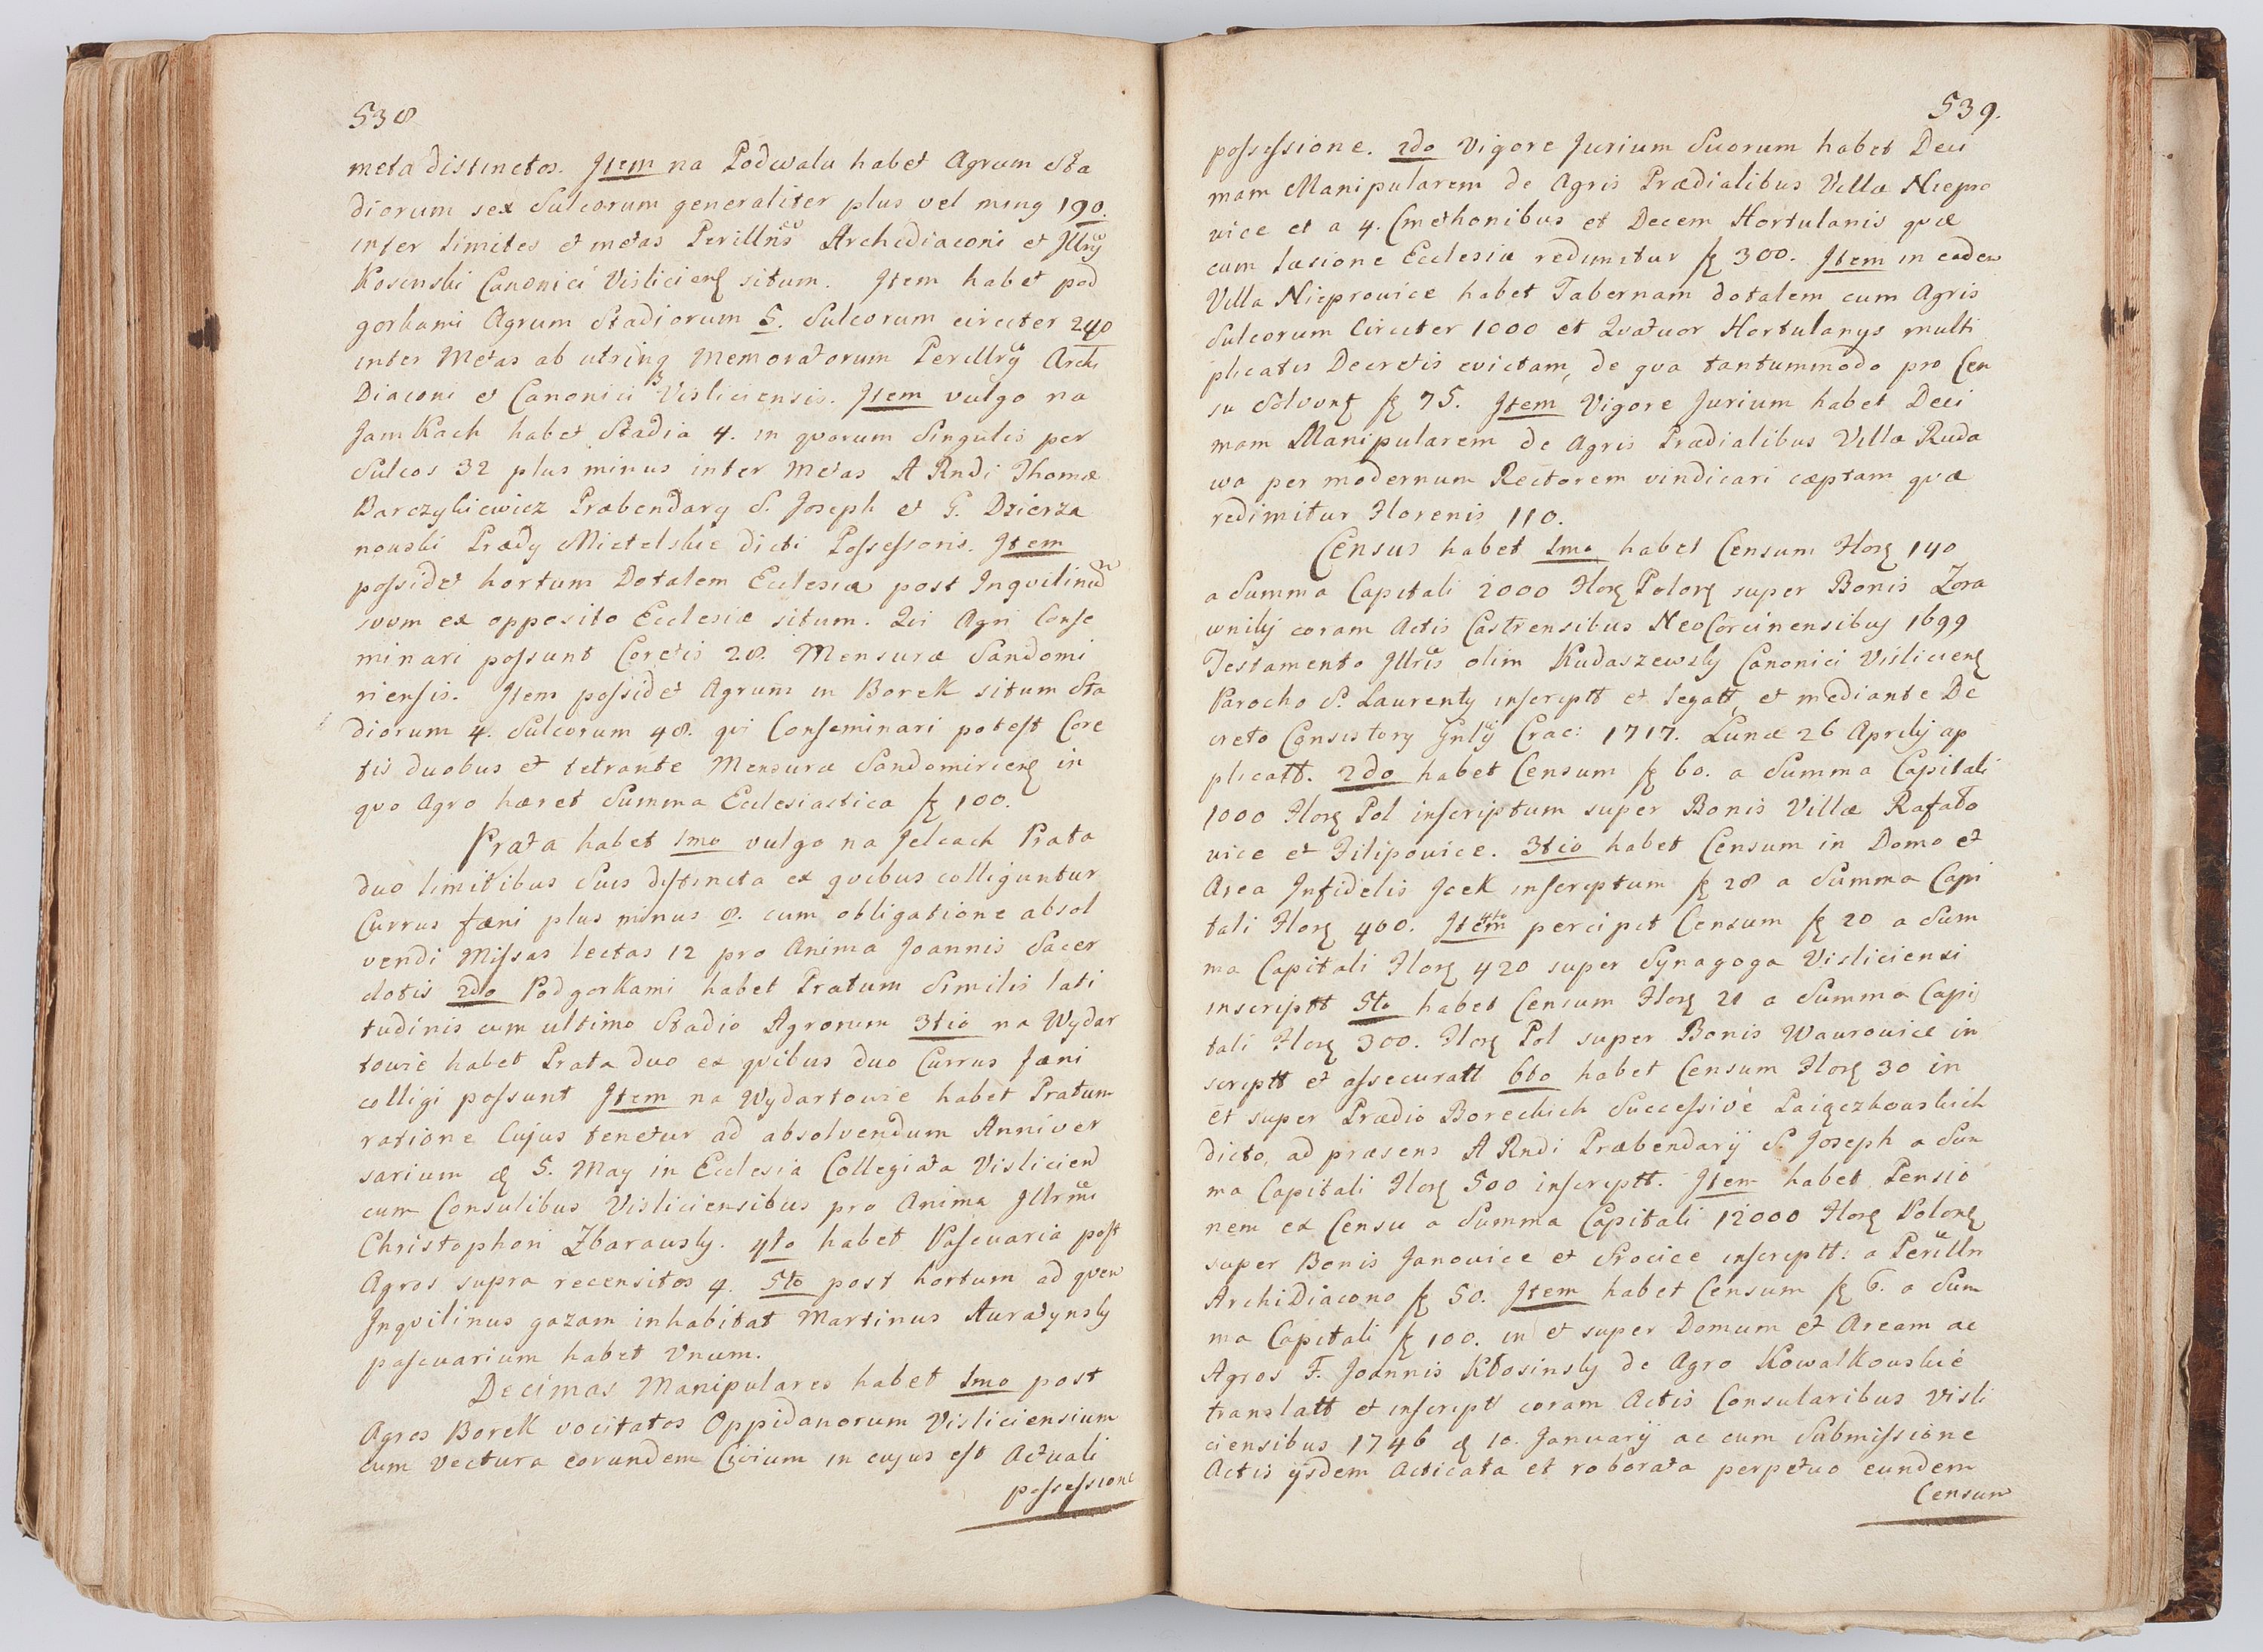 538
meta distinctos. Item na Podwalu habet Agrum Sta
diorum sex Sulcorum generaliter plus vel ming 190.
inter limites et metas Perillris Archidiaconi et Illrij
Kosinski Canonici Visliciens situm. Item habet pod
gorkami Agrum Stadiorum 5. Sulcorum circiter 240
inter Metas ab utrinq Memoratorum Perillrij Archi
Diaconi et Canonici Visliciensis. Item vulgo na
Jamkach habet Stadia 4. in quorum Singulis per
Sulcos 32 plus minus inter Metas A Rndi Thomæ
Barczykiewicz Præbendary S. Joseph et G. Dzierza
nouski Prædy Mietelskie dicti Possessoris. Item
possidet hortum Dotalem Ecclesiæ post Inqvilinum
suum ex opposito Ecclesiæ situm. Qui Agri Conse
minari possunt Coretis 28. Mensuræ Sandomi
riensis. Item possidet Agrum in Borek situm Sta
diorum 4. Sulcorum 48. qui Conseminari potest Core
tis duobus et tetrante Mensuræ Sandomiriens in
quo Agro hæret Summa Ecclesiastica f 100.
Prata habet 1mo vulgo na Jelcach Prata
duo limitibus Suis distincta ex quibus colliguntur
Currus fæni plus minus 8. cum obligatione absol
vendi Missas lectas 12 pro Anima Joannis Sacer
dotis 2do Podgorkami habet Pratum Similis lati
tudinis cum ultimo Stadio Agrorum 3tio na Wydar
towie habet Prata duo ex quibus duo Currus fæni
colligi possunt Item na Wydartowie habet Pratum
ratione Cujus tenetur ad absolvendum Anniver
sarium d 5. May in Ecclesia Collegiata Vislicien
cum Consulibus Visliciensibus pro Anima Illrmi
Christophori Zbarausky. 4to habet Pascuaria post
Agros supra recensitos 4. 5to post hortum ad quem
Inqvilinus gazam inhabitat Martinus Auratynsky
pascuarium habet Unum.
Decimas Manipulares habet 1mo post
Agros Borek vocitatos Oppidanorum Visliciensium
cum Vectura eorundem Civium in cujus est Actuali
possessione
539.
possessione. 2do Vigore Jurium Suorum habet Deci
mam Manipularem de Agris Prædialibus Villæ Niepro
vice et a 4. Cmethonibus et Decem Hortulanis quæ
cum læsione Ecclesiæ redimitur f 300. Item in eadem
Villa Nieprovice habet Tabernam dotalem cum Agris
Sulcorum Circiter 1000 et Quatuor Hortulanys multi
plicatis Decretis evictam, de qua tantummodo pro Cen
su Solvunt f 75. Item Vigore Jurium habet Deci
mam Manipularem de Agris Prædialibus Villæ Ruda
wa per modernum Rectorem vindicari cæptam quæ
redimitur Florenis 110.
Census habet 1mo habet Censum Flor 140
a Summa Capitali 2000 Flor Polor super Bonis Zora
wniky coram Actis Castrensibus NeoCorcinensibus 1699
Testamento Illris olim Kudaszewsky Canonici Visliciens
Parocho S. Laurenty inscriptt et legatt, et mediante De
creto Consistory Gnlij Crac: 1717. Lunæ 26 Aprilij ap
plicatt. 2do habet Censum f 60. a Summa Capitali
1000 Flor Pol inscriptum super Bonis Villæ Rafało
vice et Filipovice. 3tio habet Censum in Domo et
Area Infidelis Jcek inscriptum f 28 a Summa Capi
tali Flor 400. Item 4to percipit Censum f 20 a Sum
ma Capitali Flor 420 super Synagoga Visliciensi
inscriptt 5to habet Censum Flor 21 a Summa Capi
tali Flor 300. Flor Pol super Bonis Waurovice in
scriptt et assecuratt 6to habet Censum Flor 30 in
et super Prædio Boreckich Successivè Paiączkouskich
dicto, ad præsens A Rndi Præbendarij S. Joseph a Sum
ma Capitali Flor 500 inscriptt. Item habet Pensio
nem ex Censu a Summa Capitali 12000 Flor Polor
super Bonis Janovice et Srocice inscriptt. a Perilln
ArchiDiacono f 50. Item habet Censum f 6. a Sum
ma Capitali f 100. in et super Domum et Aream ac
Agros F. Joannis Kłosinsky de Agro Kowalkouskie
translatt et inscript coram Actis Consularibus Visli
ciensibus 1746 d 10. Januarij ac cum Submissione
Actis ijsdem Acticata et roborata perpetuo eundem
Censum